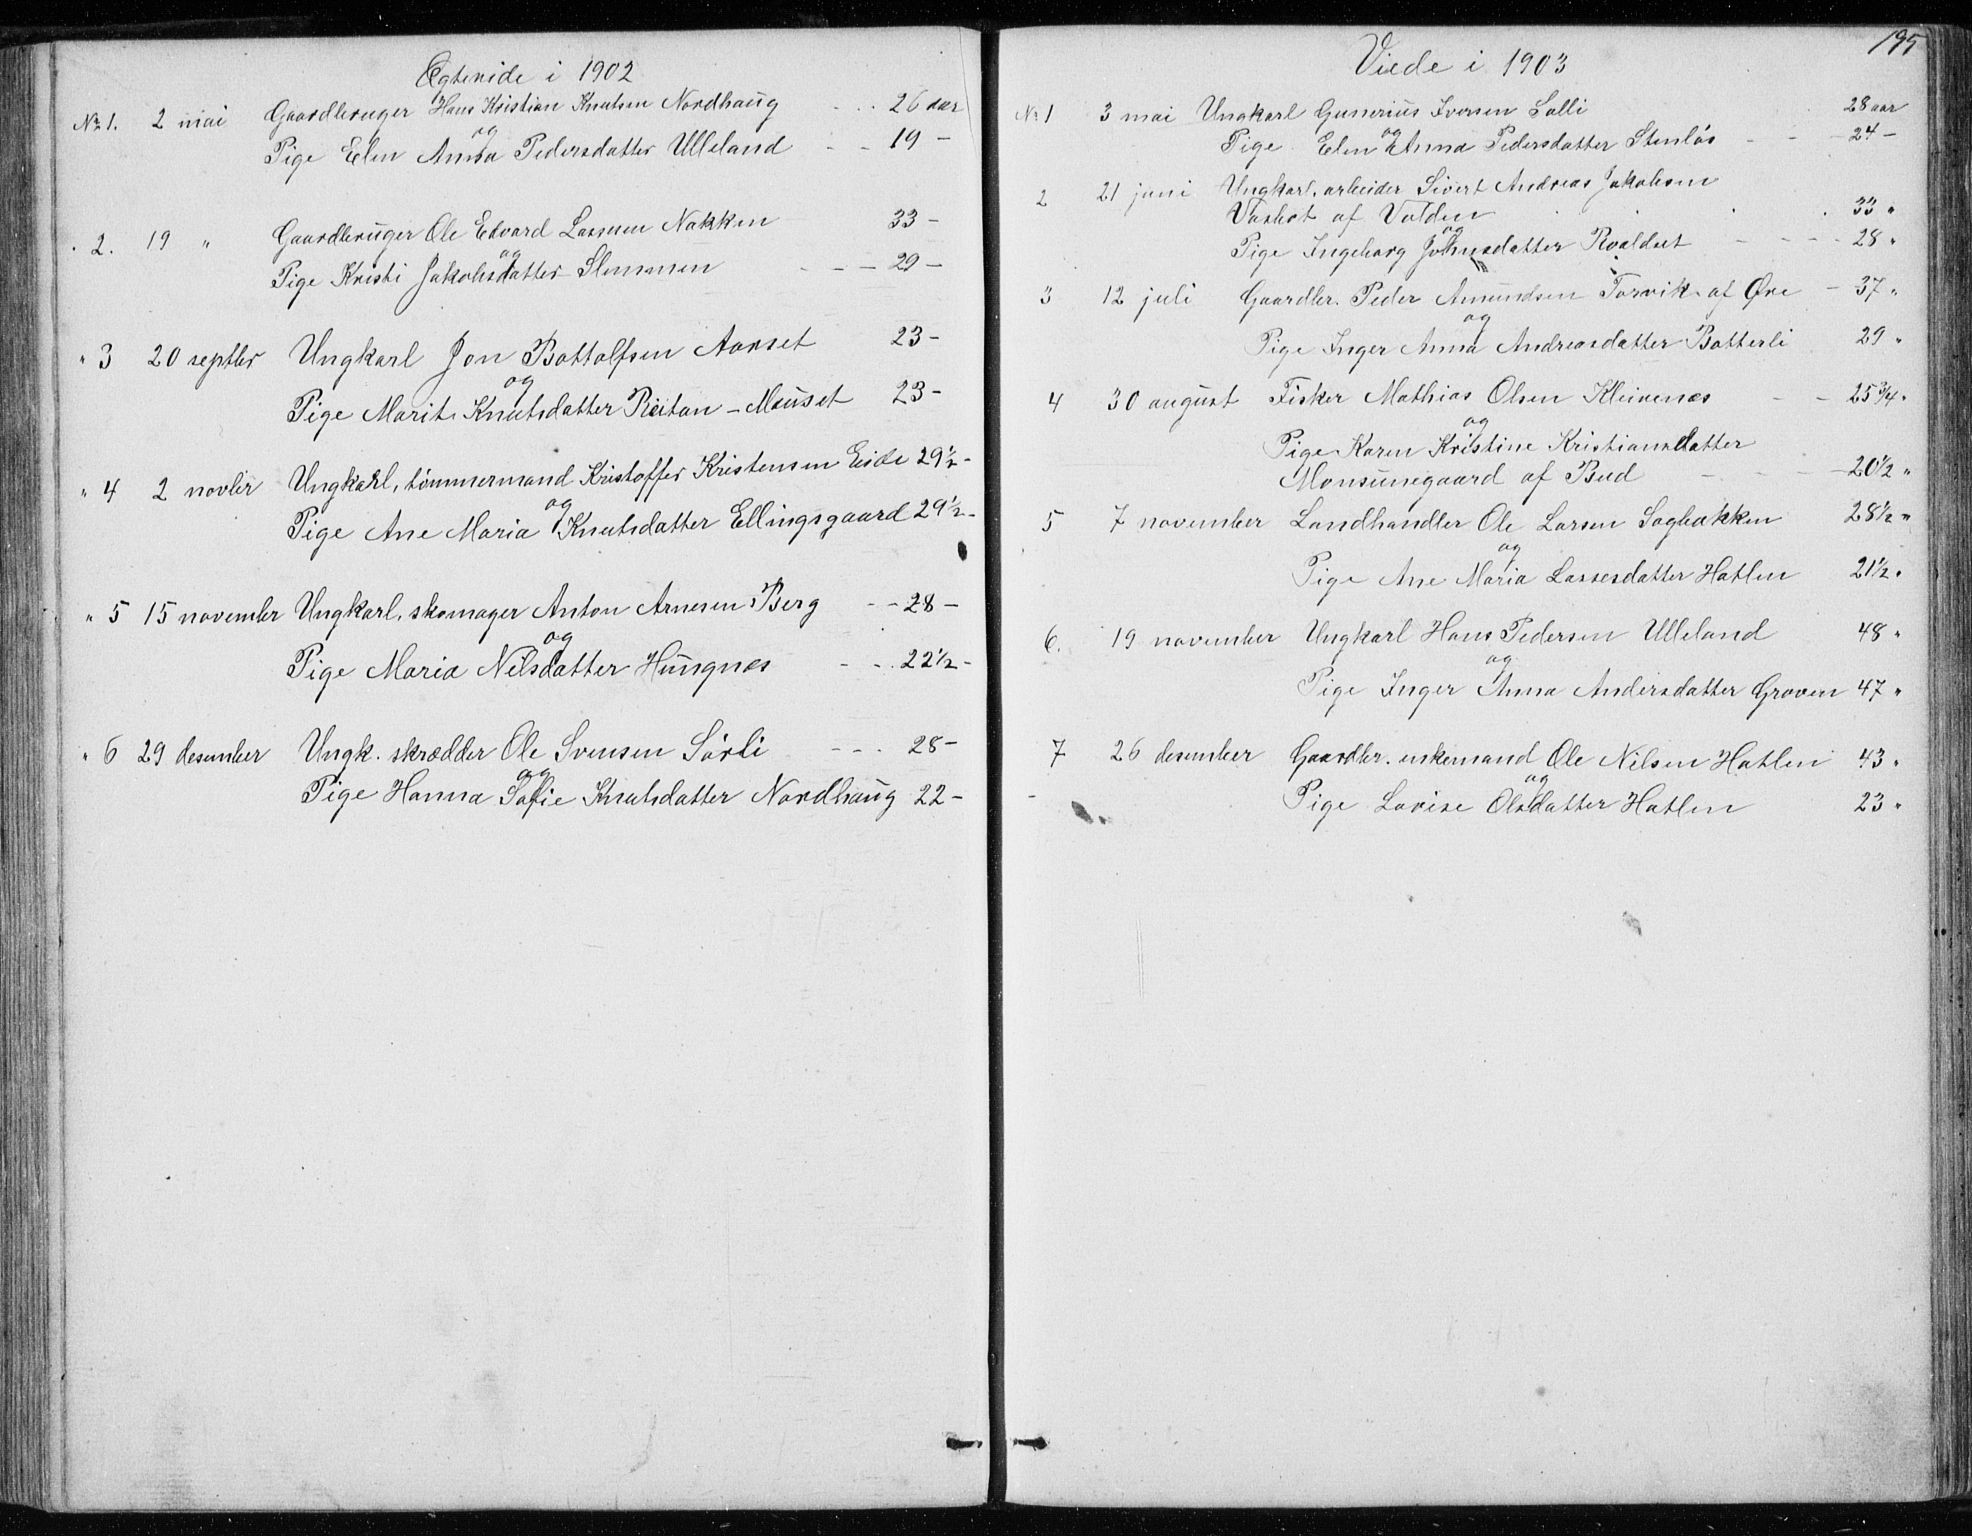 Ægteviede i 1902
No 1. 2 mai Gaardbruger Hans Kristian Knutsen Nordhaug - . . 26 aar
og
Pige Elen Anna Pedersdatter Ulleland - - 19 -
" 2. 19 " Gaardbruger Ole Edvard Lassesen Nakken 33 -
og
Pige Kristi Jakobsdatter Slemmen - - - 29 -
" 3 20 septbr Ungkarl Jon Bottolfsen Aarset 23 -
og
Pige Marit Knutsdatter Reitan - Mauset 23 -
" 4 2 novbr Ungkarl, tömmermand Kristoffer Kristensen Eide 29 1/2 -
og
Pige Ane Maria Knutsdatter Ellingsgaard 29 1/2 -
" 5 15 november Ungkarl, skomager Anton Arnesen Berg - - 28 -
og
Pige Maria Nilsdatter Hungnes - - . 22 1/2 -
" 6 29 desember Ungk. skrædder Ole Svensen Sörli - - . 28 -
og
Pige Hanna Sofie Knutsdatter Nordhaug 22 -
195
Viede i 1903
No 1 3 mai Ungkarl Gunerius Iversen Lolli 28 aar
og
Pige Elen Anna Pedersdatter Stenlös - - - 24 -
2 21 juni Ungkarl, arbeider Sivert Andreas Jakobsen
af Volden . 33 "
og
Pige Ingeborg Johnsdatter - - - - 28 "
3 12 juli Gaardbr. Peder Amundsen Torvik af Öre - 37 "
og
Pige Inger Anna Andreasdatter Batterli 29 "
4 30 august Fisker Mathias Olsen Kleivenes - - 25 3/4 "
og
Pige Karen Kristine Kristiansdatter
Monsunegaard af Bud - - - 20 1/2 "
5 7 november Landhandler Ole Larsen Sagbakken 28 1/2 "
og
Pige Ane Maria Lassesdatter Hatlen 21 1/2 "
6. 19 november Ungkarl Hans Pedersen Ulleland 48 "
og
Pige Inger Anna Andersdatter Groven 47 "
7 26 desember Gaardbr. enkemand Ole Nilsen Hatlen 43 "
og
Pige Lovise Olsdatter Hatlen 23 "